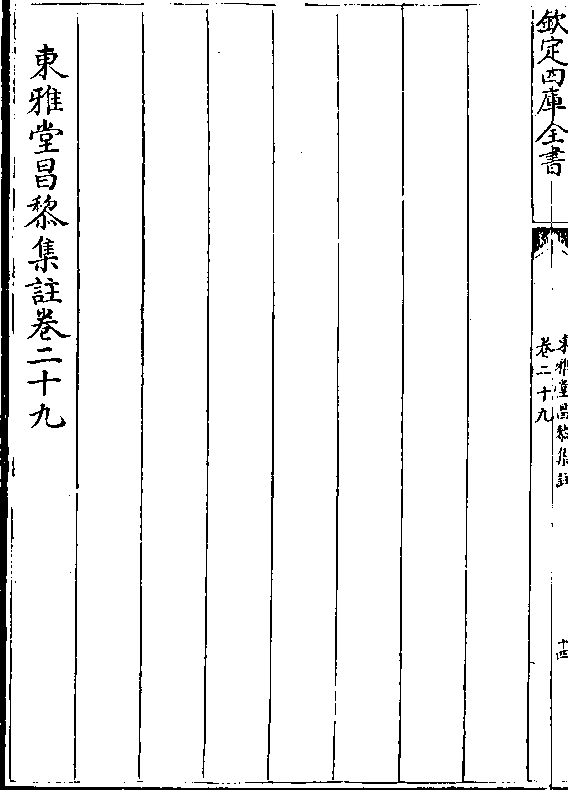 欽定四庫全書
東雅堂昌黎集註
卷二十九
十四
東雅堂昌黎集註卷二十九